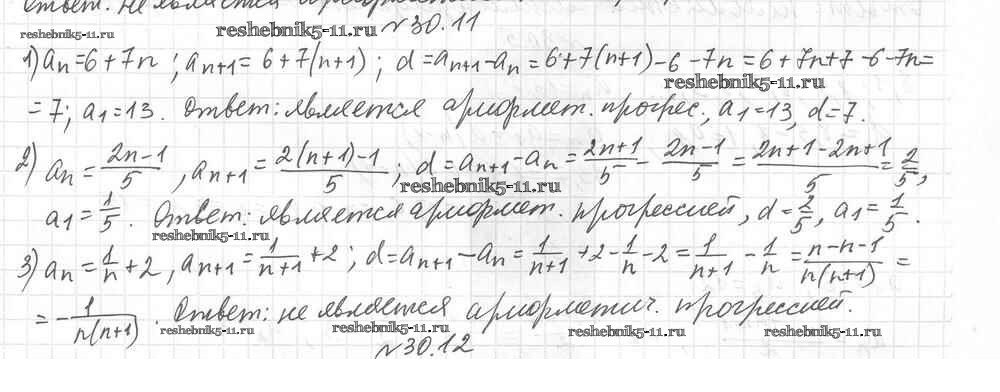 Ответ: не является арифмет
reshebnik5-11.ru reshebnik5-11.ru №30.11
1) aₙ=6+7n; aₙ₊₁=6+7(n+1); d=aₙ₊₁-aₙ=6+7(n+1)-6-7n=6+7n+7-6-7n=
reshebnik5-11.ru
=7; a₁=13. Ответ: является арифмет. прогрес., a₁=13, d=7.
2) aₙ=(2n-1)/5, aₙ₊₁=(2(n+1)-1)/5; d=aₙ₊₁-aₙ=(2n+1)/5-(2n-1)/5=(2n+1-2n+1)/5=2/5,
reshebnik5-11.ru
a₁=1/5. Ответ: является арифмет. прогрессией, d=2/5, a₁=1/5.
reshebnik5-11.ru
3) aₙ=1/n+2, aₙ₊₁=1/(n+1)+2; d=aₙ₊₁-aₙ=1/(n+1)+2-1/n-2=1/(n+1)-1/n=(n-n-1)/(n(n+1))=
=-1/(n(n+1)). Ответ: не является арифметич. прогрессией.
reshebnik5-11.ru reshebnik5-11.ru reshebnik5-11.ru reshebnik5-11.ru
№30.12